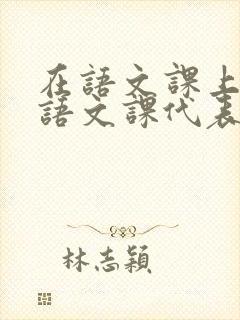 在語文課上
語文課代表
林志穎